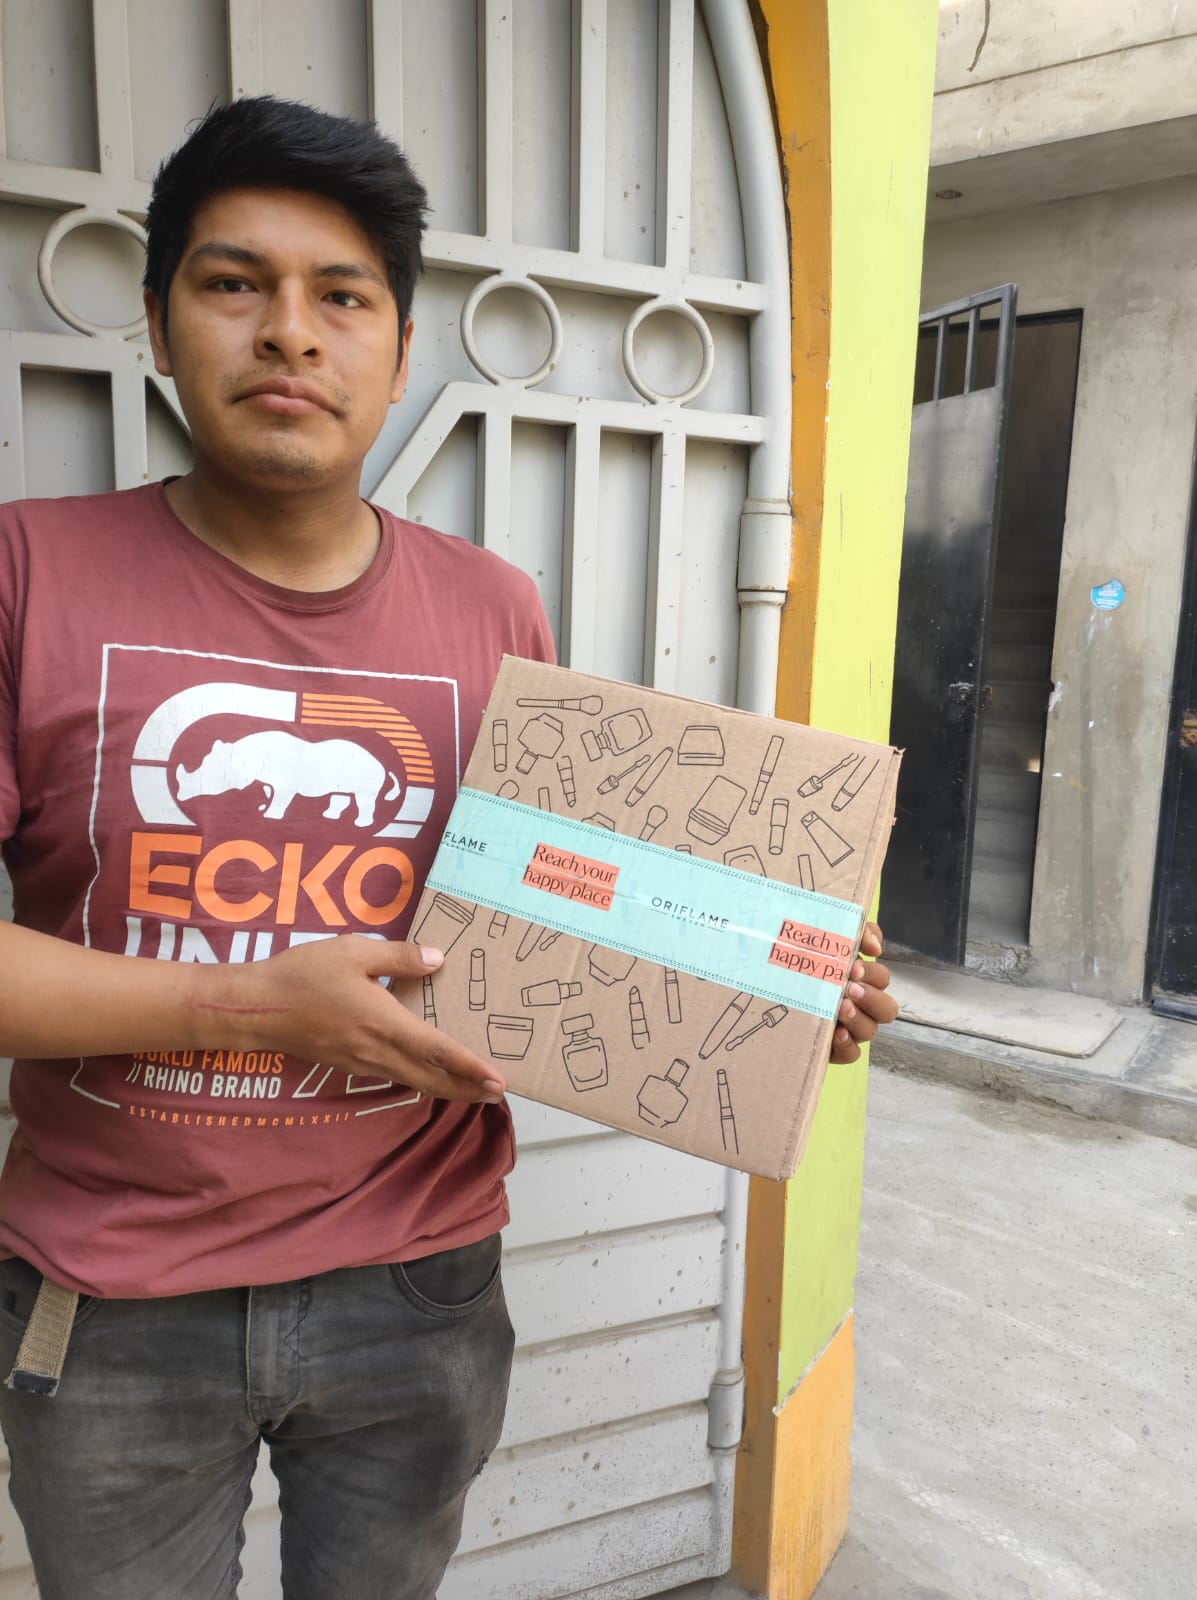 ECKO
WORLD FAMOUS
// RHINO BRAND
ESTABLISHED MCMLXXII
FLAME
Reach your
happy place
ORIFLAME
SWEDEN
Reach yo
happy pa